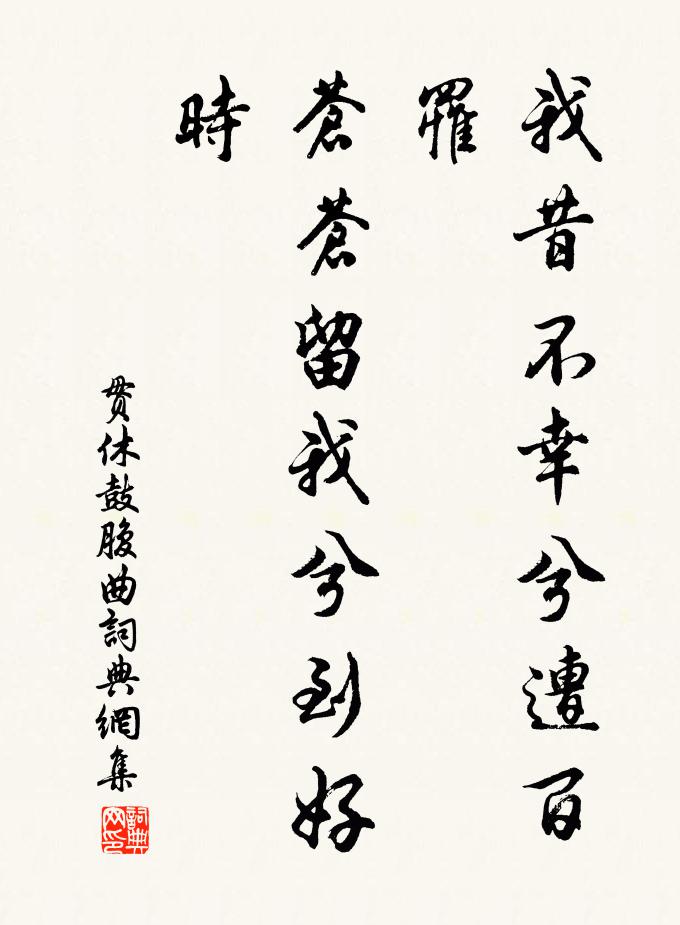 我昔不幸兮遭百
罹
蒼蒼留我兮到好
時
貫休鼓腹曲詞典網集
詞典
网印